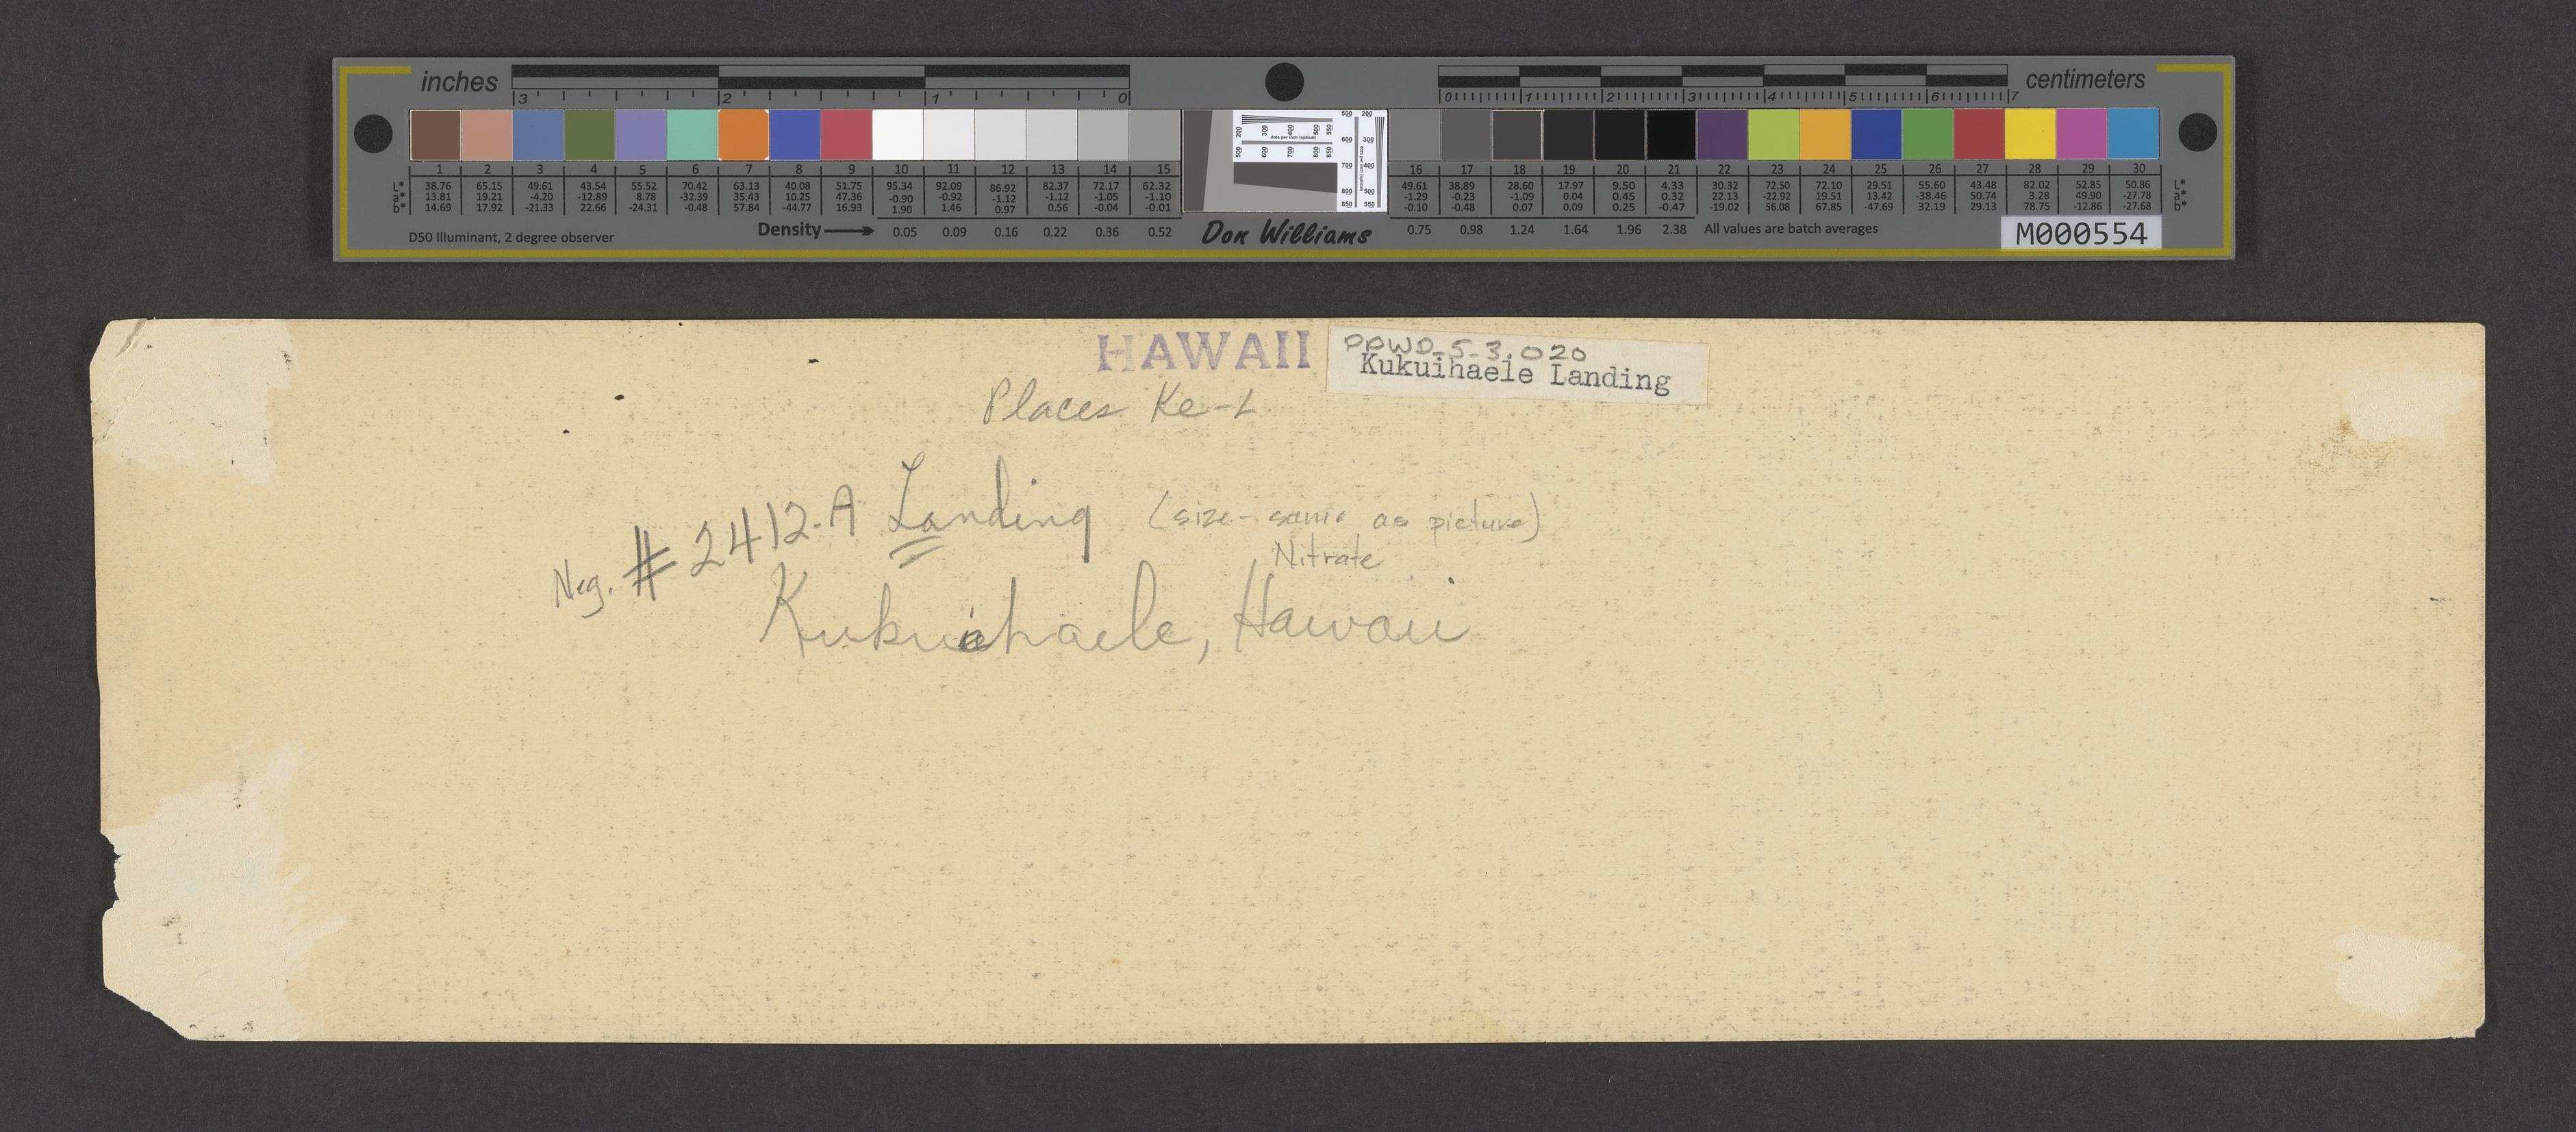 inches
centimeters
3 2 1 0
0 1 2 3 4 5 6 7
1 2 3 4 5 6 7 8 9 10 11 12 13 14 15
16 17 18 19 20 21 22 23 24 25 26 27 28 29 30
L* 38.76 65.15 49.61 43.54 55.52 70.42 63.13 40.08 51.75 95.34 92.09 86.92 82.37 72.17 62.32
a* 13.81 19.21 -4.20 -12.89 8.78 -32.39 35.43 10.25 47.36 -0.90 -0.92 -1.12 -1.12 -1.05 -1.10
b* 14.69 17.92 -21.33 22.66 -24.31 -0.48 57.84 -44.77 16.93 1.90 1.46 0.97 0.56 -0.04 -0.01
49.61 38.89 28.60 17.97 9.50 4.33 30.32 72.50 72.10 29.51 55.60 43.48 82.02 52.85 50.86 L*
-1.29 -0.23 -1.09 0.04 0.45 0.32 22.13 -22.92 19.51 13.42 -38.46 50.74 3.28 49.90 -27.78 a*
-0.10 -0.48 0.07 0.09 0.25 -0.47 -19.02 56.08 67.85 -47.69 32.19 29.13 78.75 -12.86 -27.68 b*
D50 Illuminant, 2 degree observer
Density 0.05 0.09 0.16 0.22 0.36 0.52
Don Williams
0.75 0.98 1.24 1.64 1.96 2.38 All values are batch averages
M000554
HAWAII
PPWD-5-3.020
Kukuihaele Landing
Places Ke-L
Neg. #2412-A Landing (size-same as picture)
Nitrate
Kukuihaele, Hawaii